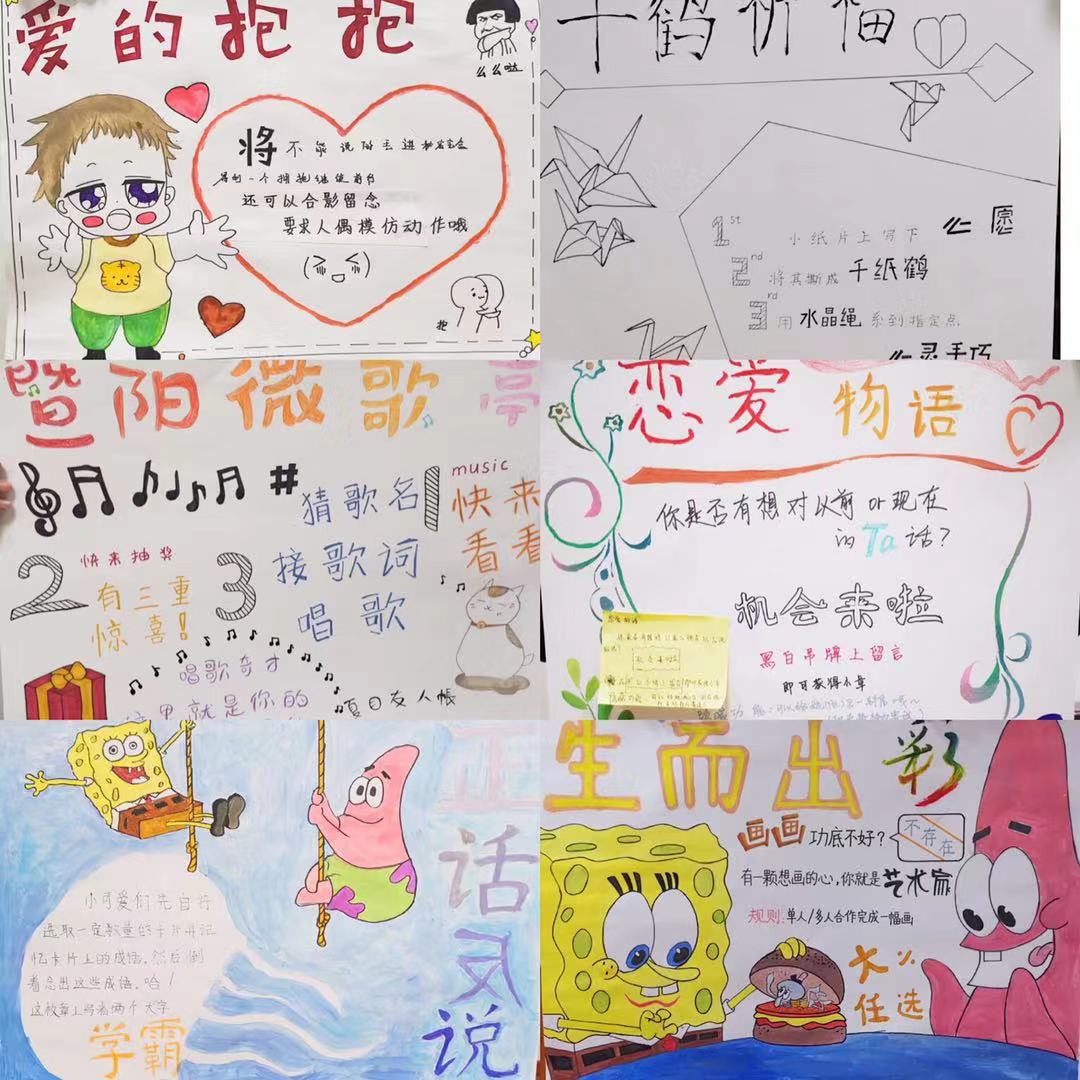 爱的抱抱
么么哒
将不能说的丢进树洞会
得到一个拥抱继续前行
还可以合影留念
要求人偶模仿动作哦
抱
千鹤祈福
1st 小纸片上写下心愿
2nd 将其撕成千纸鹤
3rd 用水晶绳系到指定点
心灵手巧
暨阳微歌亭
#
猜歌名
1
music
快来
看看
2
快来抽奖
有三重
惊喜!
3
接歌词
唱歌
唱歌奇才
这里就是你的
夏目友人帐
恋爱物语
你是否有想对以前or现在
的Ta话?
机会来啦
黑白吊牌上留言
即可获得小章
正话反说
小可爱们先自行
选取一定数量的卡片并记
忆卡片上的成语,然后倒
着念出这些成语,哈!
这枚章上写着两个大字
学霸
生而出彩
画画功底不好?
不存在
有一颗想画的心,你就是艺术家
规则:单人/多人合作完成一幅画
大小
任选